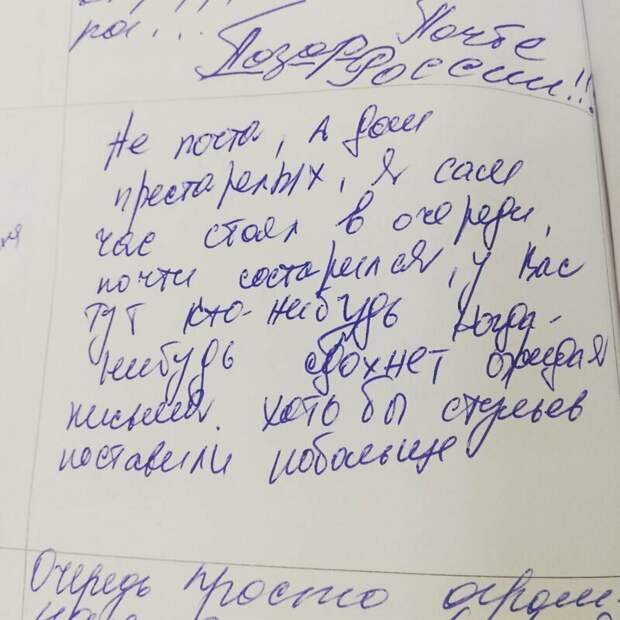 рог...
Позор Почте
России!!!
Не почта, а дом
престарелых, я сам
час стоял в очереди,
почти состарился, у вас
тут кто-нибудь когда-
нибудь сдохнет ожидая
письма. хотя бы стульев
поставили побольше
Очередь просто огром-